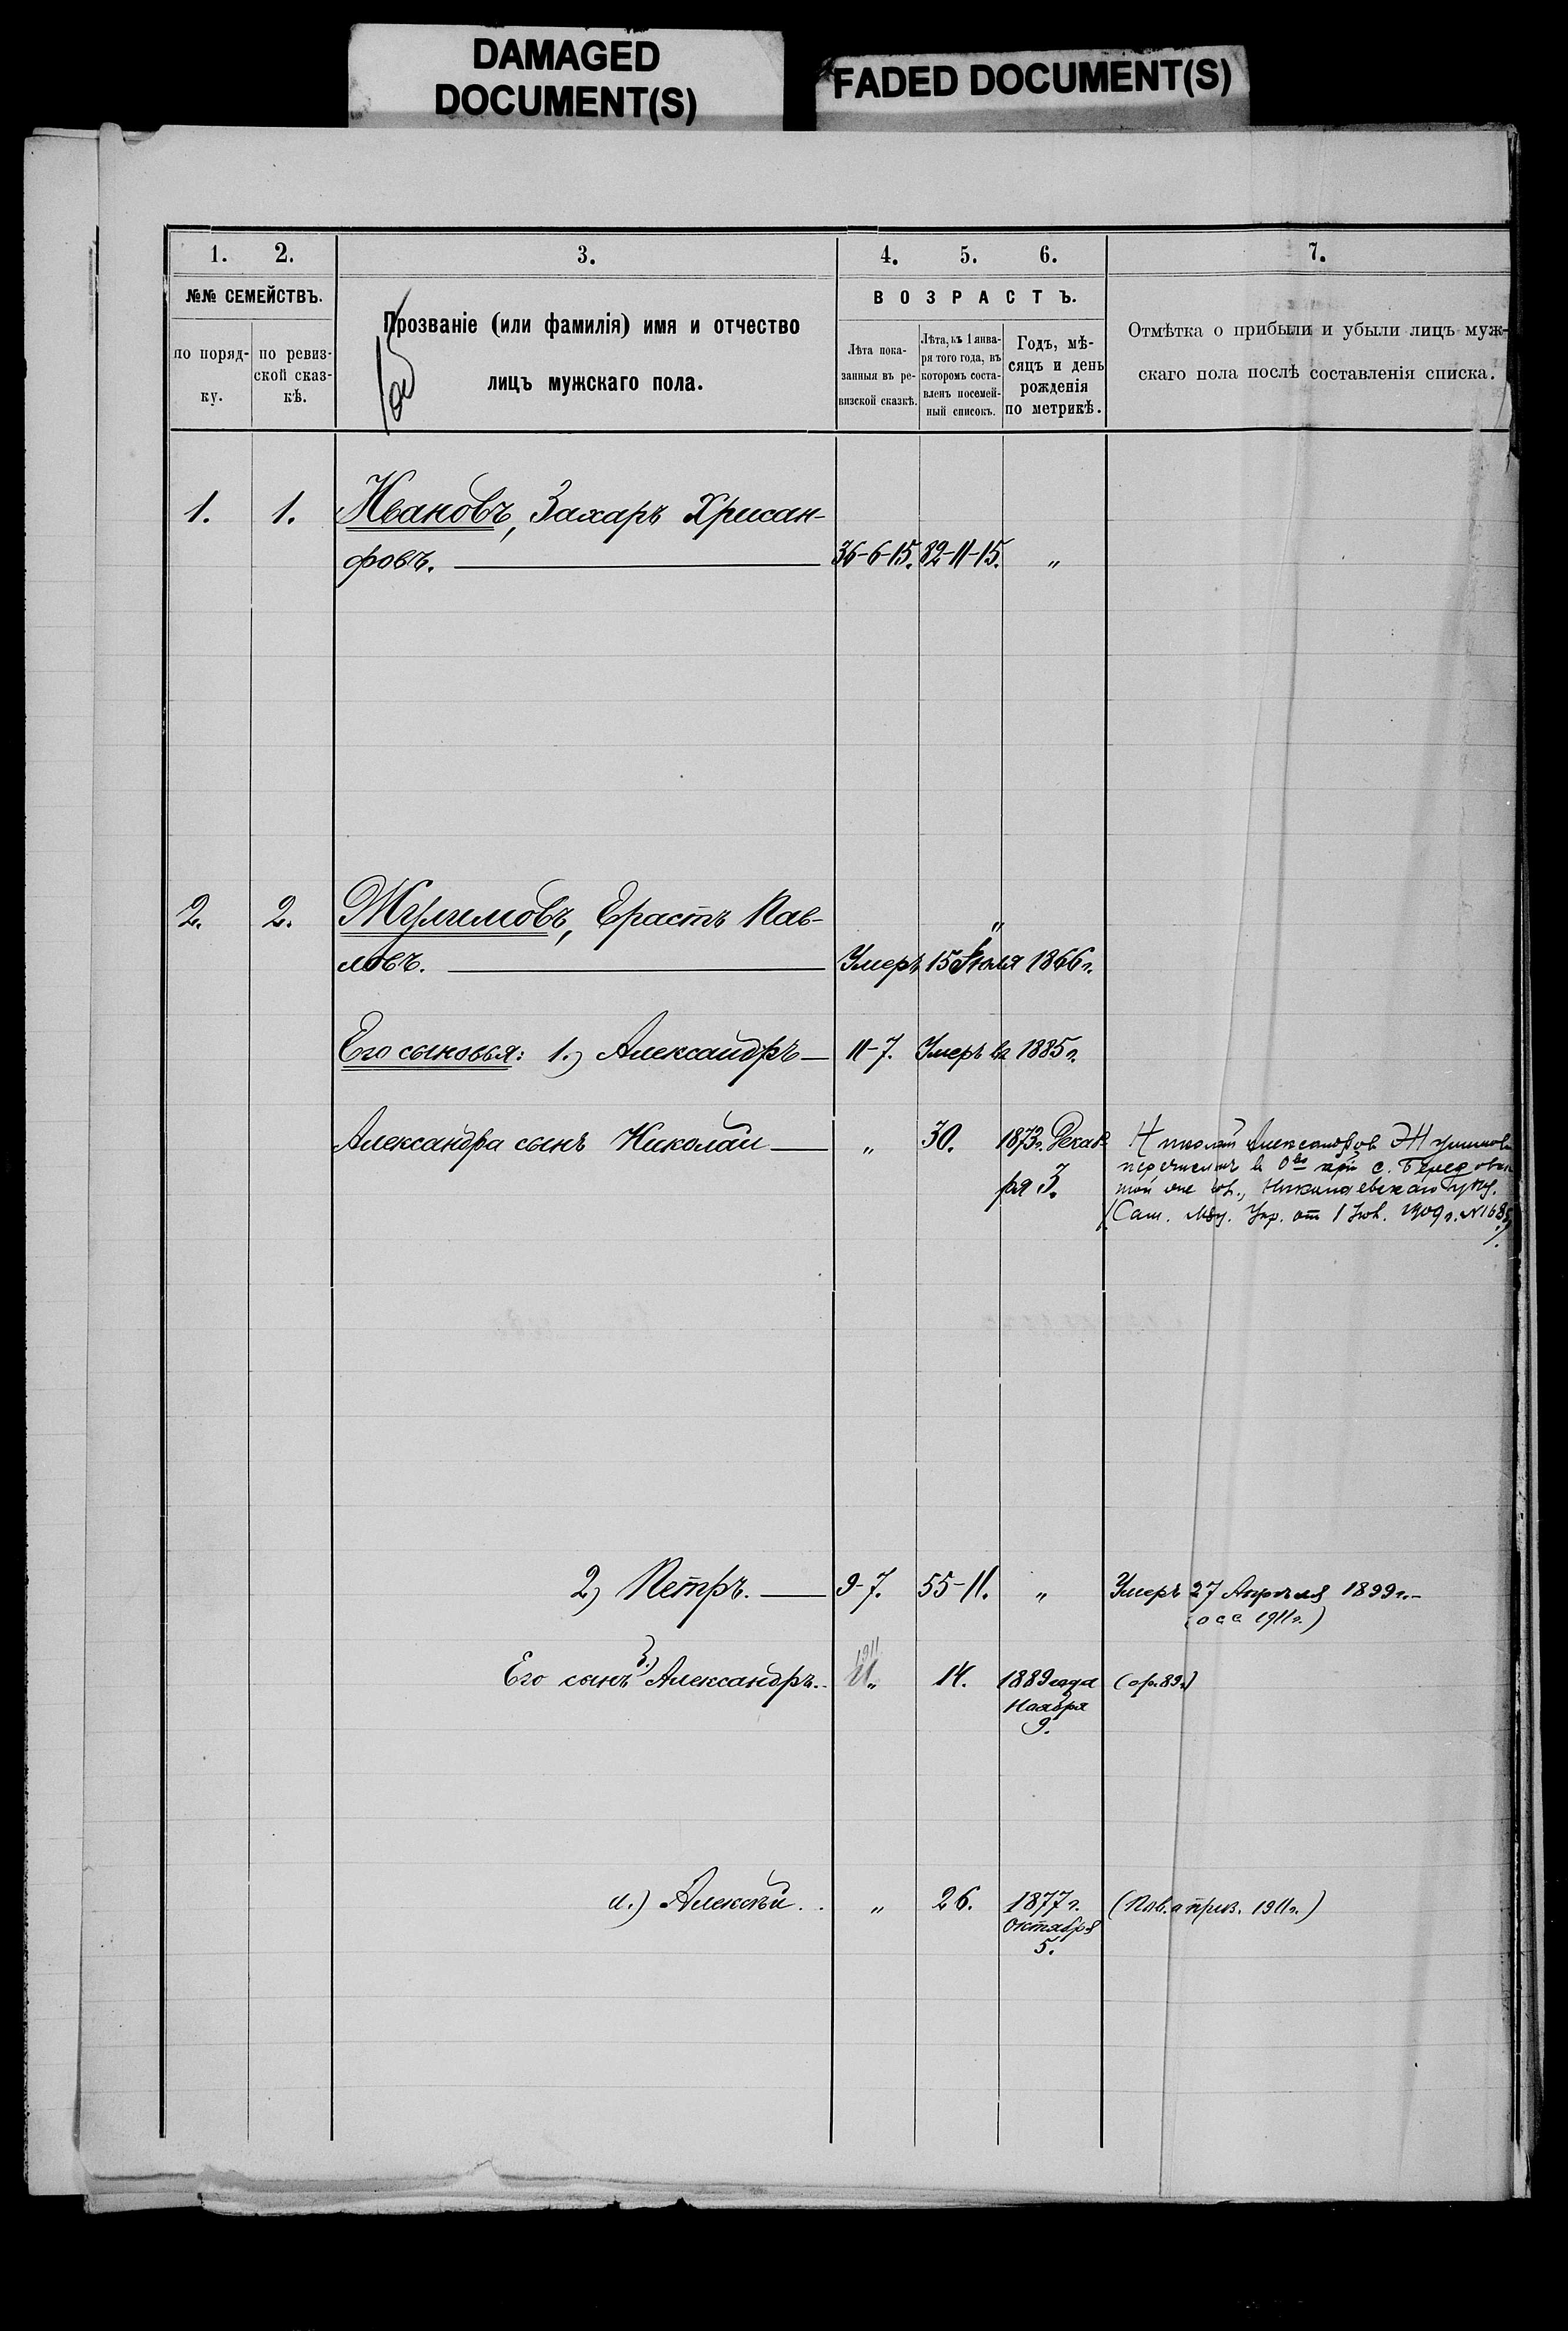 DAMAGED
DOCUMENT(S)
FADED DOCUMENT(S)
1. 2. 3. 4. 5. 6. 7.
№№ СЕМЕЙСТВЪ.
по поряд-
ку.
по ревиз-
ской сказ-
кѣ.
Прозваніе (или фамилія) имя и отчество
лицъ мужскаго пола.
ВОЗРАСТЪ.
Лѣта пока-
занныя въ ре-
визской сказкѣ.
Лѣта, къ 1 янва-
ря того года, въ
которомъ соста-
вленъ посемей-
ный списокъ.
Годъ, мѣ-
сяцъ и день
рожденія
по метрикѣ.
Отмѣтка о прибыли и убыли лицъ муж-
скаго пола послѣ составленія списка.
1. 1. Ивановъ, Захаръ Хрисан-
фовъ. 36-6-15. 82-11-15. "
2. 2. Жулимовъ, Ерастъ Пав- "
ловъ. Умеръ 15 Іюля 1866 г.
Его сыновья: 1.) Александръ 11-7. Умеръ въ 1885 г.
Александра сынъ Николай " 30. 1873 г. Декаб-
ря 3.
Николай Александровъ
перечисленъ въ при с.
от 1 1909 г. №
2) Петръ. 9-7. 55-11. " Умеръ 27 Апрѣля 1899 г.
1911 г.)
Его сынъ 3.) Александръ. 1911 " 14. 1889 года (ор. 89.)
Ноября
9.
Алексѣй. " 26. 1877 г. 1911 г.)
Октября
5.